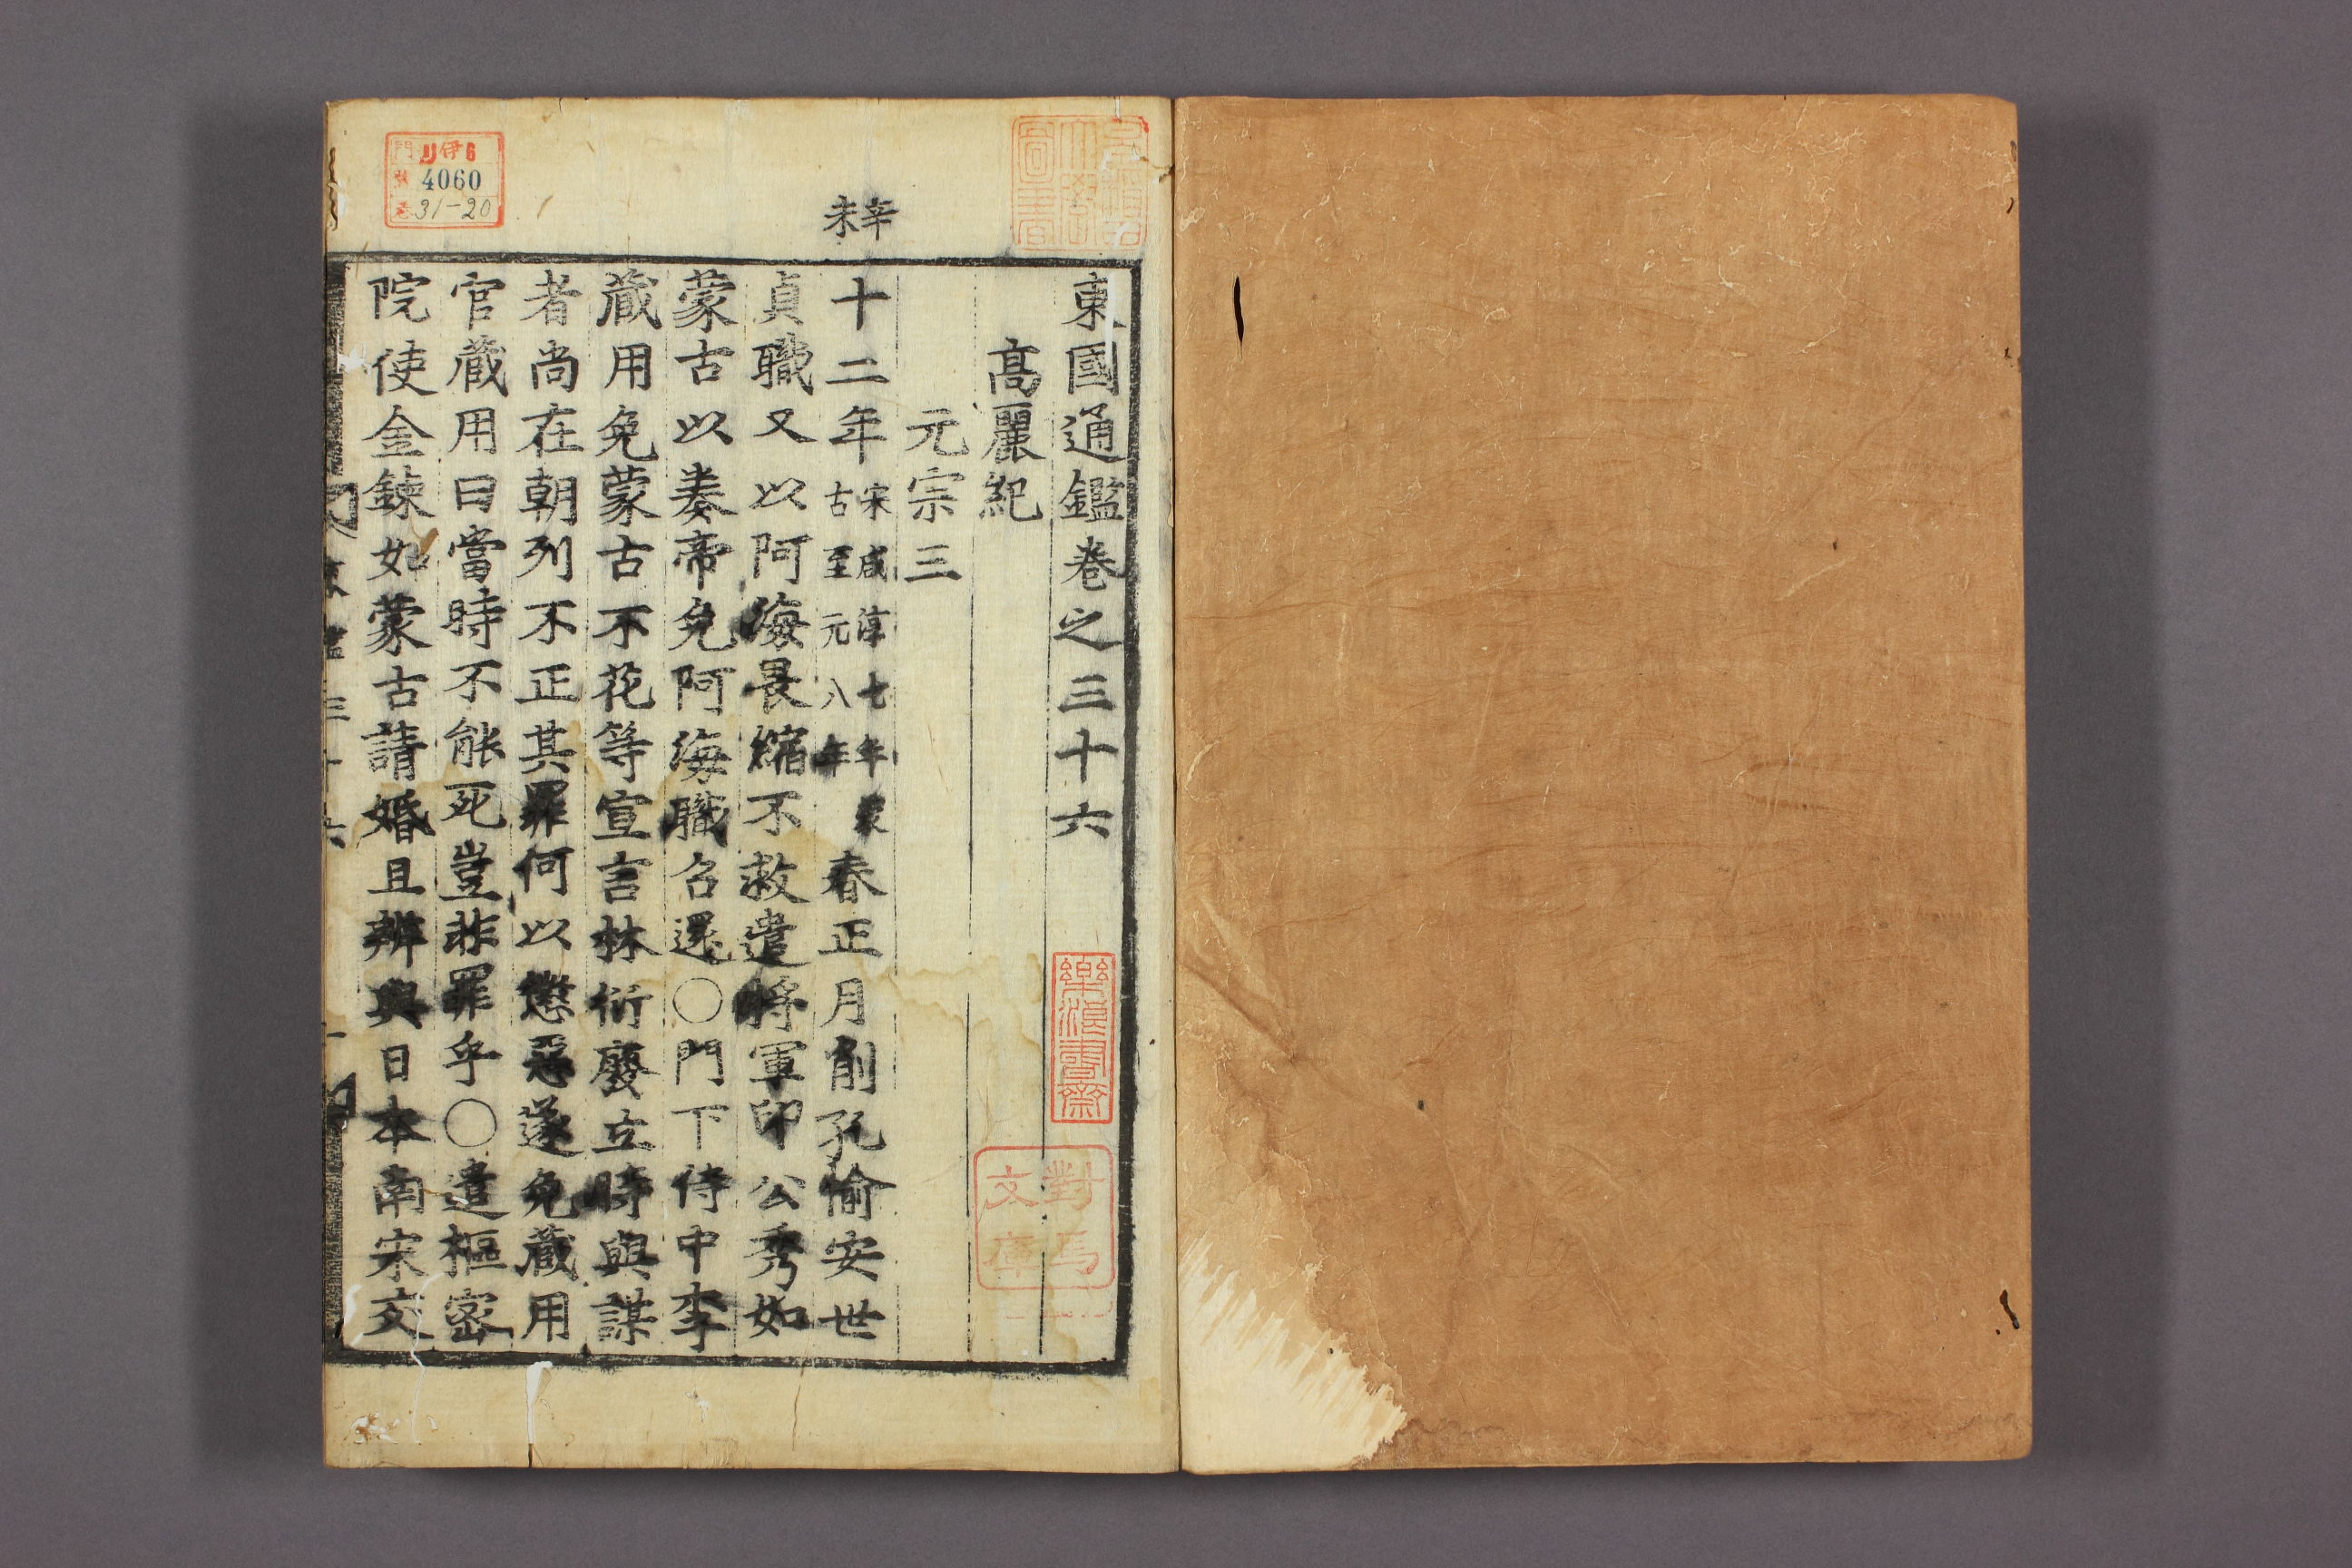 東國通鑑卷之三十六
高麗紀
元宗三
辛未
十二年宋咸淳七年蒙古至元八年春正月削孔愉安世
貞職又以阿海畏縮不救遣將軍印公秀如
蒙古以奏帝免阿海職召還○門下侍中李
藏用免蒙古不花等宣言林衍廢立時與謀
者尚在朝列不正其罪何以懲惡遂免藏用
官藏用曰當時不能死豈非罪乎○遣樞密
院使金鍊如蒙古請婚且辨與日本南宋交
門 リ伊6
號 4060
卷 31-20
樂浪書齋
對馬
文庫